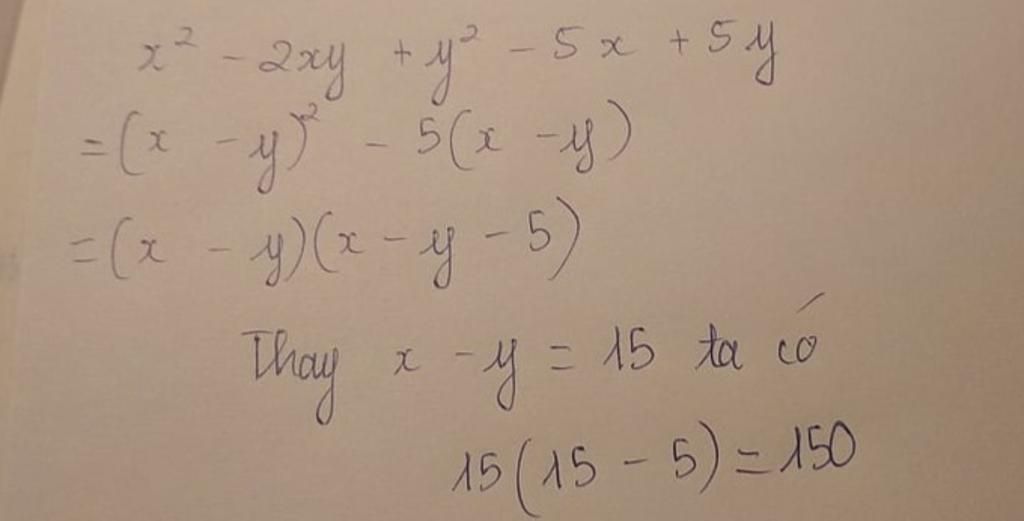 x² - 2xy + y² - 5x + 5y
= (x - y)² - 5(x - y)
= (x - y)(x - y - 5)
Thay x - y = 15 ta có
15(15 - 5) = 150